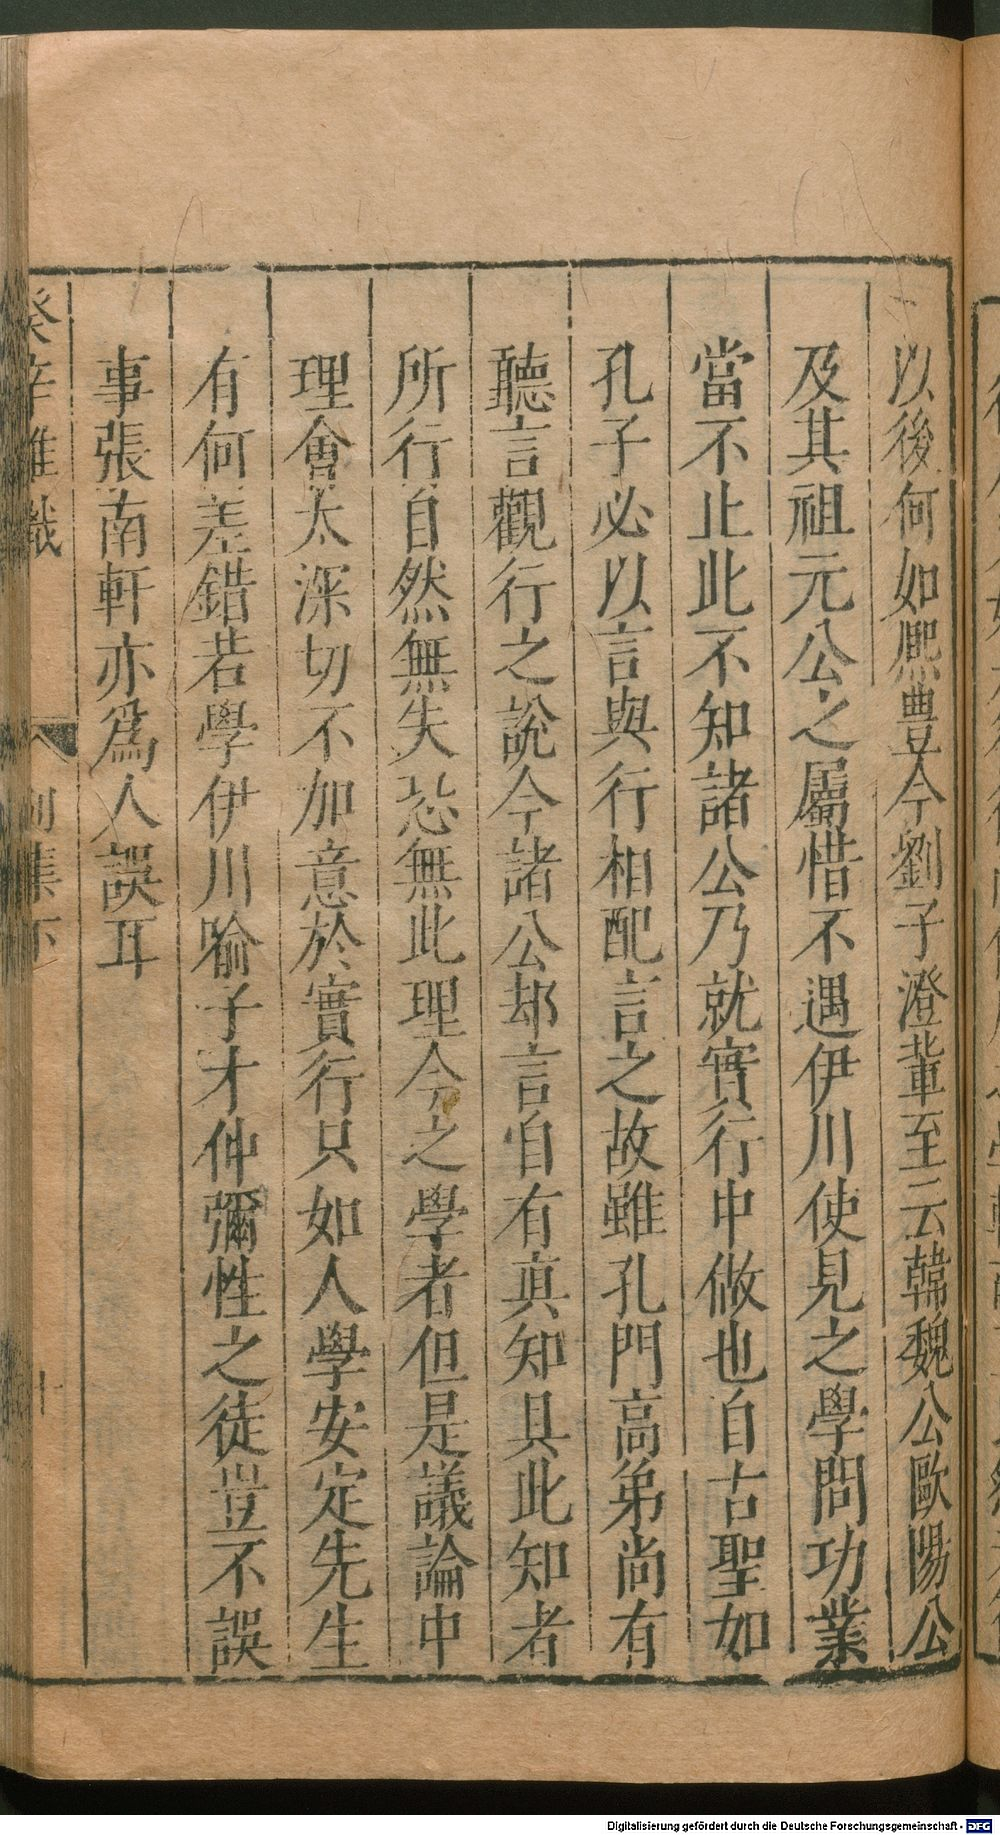 以後何如熙豐今劉子澄輩至云韓魏公歐陽公
及其祖元公之屬惜不遇伊川使見之學問功業
當不止此不知諸公乃就實行中做也自古聖如
孔子必以言與行相配言之故雖孔門高弟尚有
聽言觀行之說今諸公却言自有真知具此知者
所行自然無失恐無此理今之學者但是議論中
理會太深切不加意於實行只如人學安定先生
有何差錯若學伊川喻子才仲彌性之徒豈不誤
事張南軒亦爲人誤耳
癸辛雜識 別集下 十
Digitalisierung gefördert durch die Deutsche Forschungsgemeinschaft - DFG